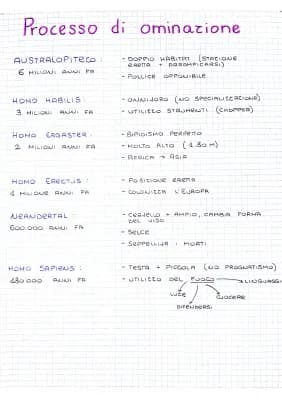 Processo di ominazione
AUSTRALOPITECO : - DOPPIO HABITAT (STAZIONE
6 MILIONI ANNI FA ERETTA + ARRAMPICARSI)
- POLLICE OPPONIBILE
HOMO HABILIS : - ONNIVORO (NO SPECIALIZZAZIONE)
3 MILIONI ANNI FA - UTILIZZO STRUMENTI (CHOPPER)
HOMO ERGASTER : - BIPIDISMO PERFETTO
2 MILIONI ANNI FA - MOLTO ALTO (1.80 M)
- AFRICA → ASIA
HOMO ERECTUS : - POSIZIONE ERETTA
1 MILIONE ANNI FA - COLONIZZA L'EUROPA
NEANDERTAL : - CERVELLO + AMPIO, CAMBIA FORMA
600.000 ANNI FA DEL VISO
- SELCE
- SEPPELLIVA I MORTI
HOMO SAPIENS : - TESTA + PICCOLA (NO PROGNATISMO)
ANNI FA - UTILIZZO DEL FUOCO → LINGUAGGIO
LUCE CUOCERE
DIFENDERSI